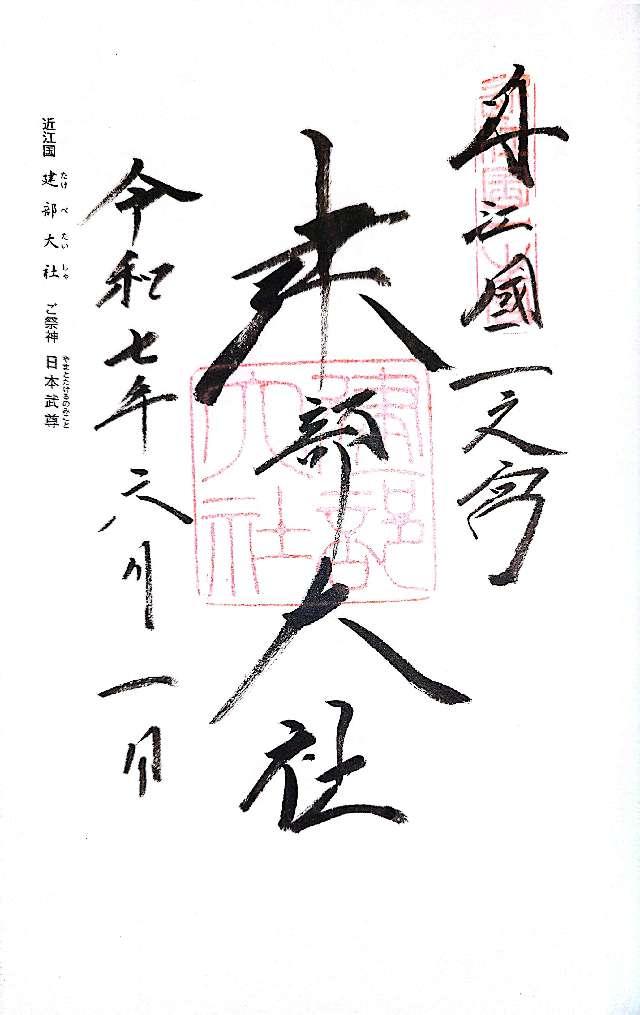 近江國一之宮
建部大社
建部大社
令和七年六月一日
近江国 建部大社 ご祭神 日本武尊
たけべたいしゃ やまとたけるのみこと